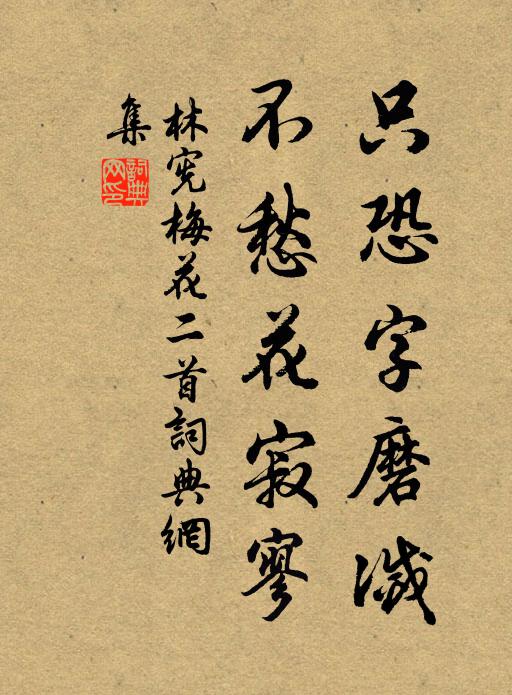 只恐字磨滅
不愁花寂寥
林宪梅花二首詞典網
集
詞典網印